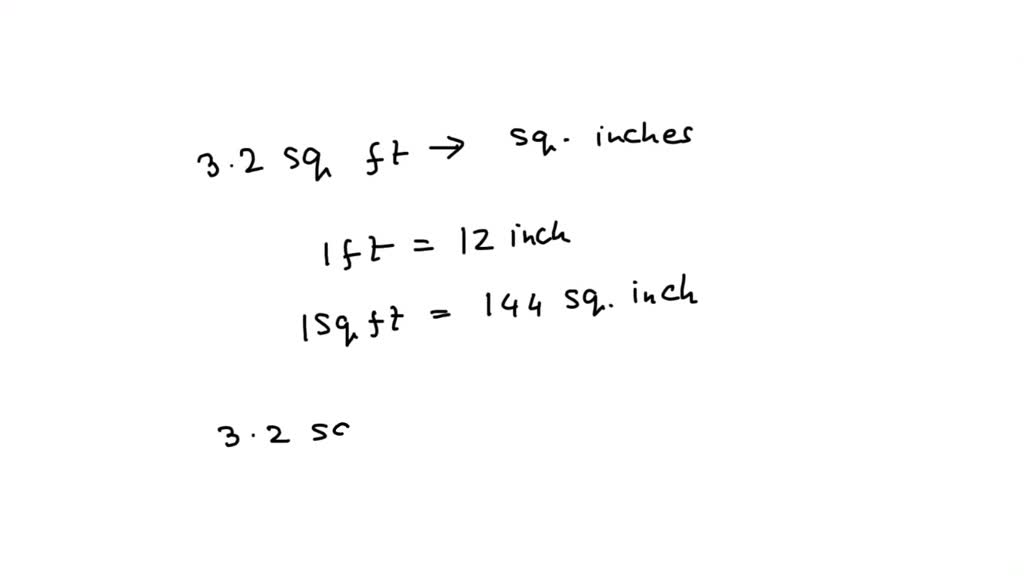 3.2 sq ft → sq. inches
1 ft = 12 inch
1 sq ft = 144 sq. inch
3.2